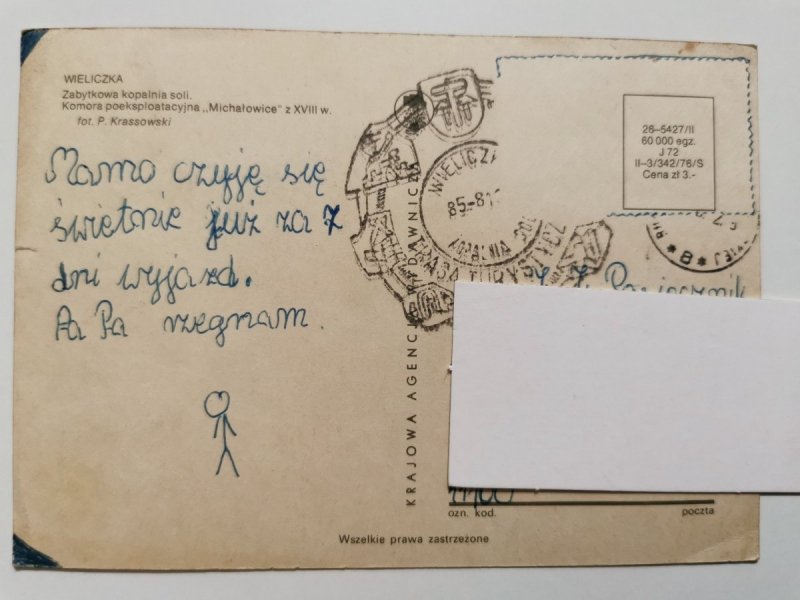 WIELICZKA
Zabytkowa kopalnia soli.
Komora poeksploatacyjna „Michałowice” z XVIII w.
fot. P. Krassowski
Mamo czyję się
świetnie już za 7
dni wyjazd.
Pa Pa rzegnam.
KRAJOWA AGENCJA WYDAWNICZA
WIELICZKA
85-8
KOPALNIA
TRASA TURYST
26-5427/II
60 000 egz.
J 72
II-3/342/76/S
Cena zł 3.-
B
ozn. kod.
poczta
Wszelkie prawa zastrzeżone